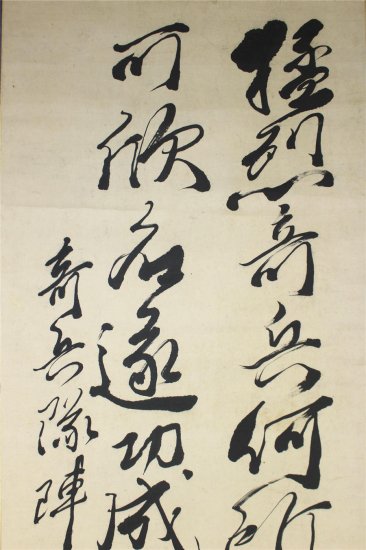 猛烈奇兵何所
可欣名遂功成
奇兵隊陣